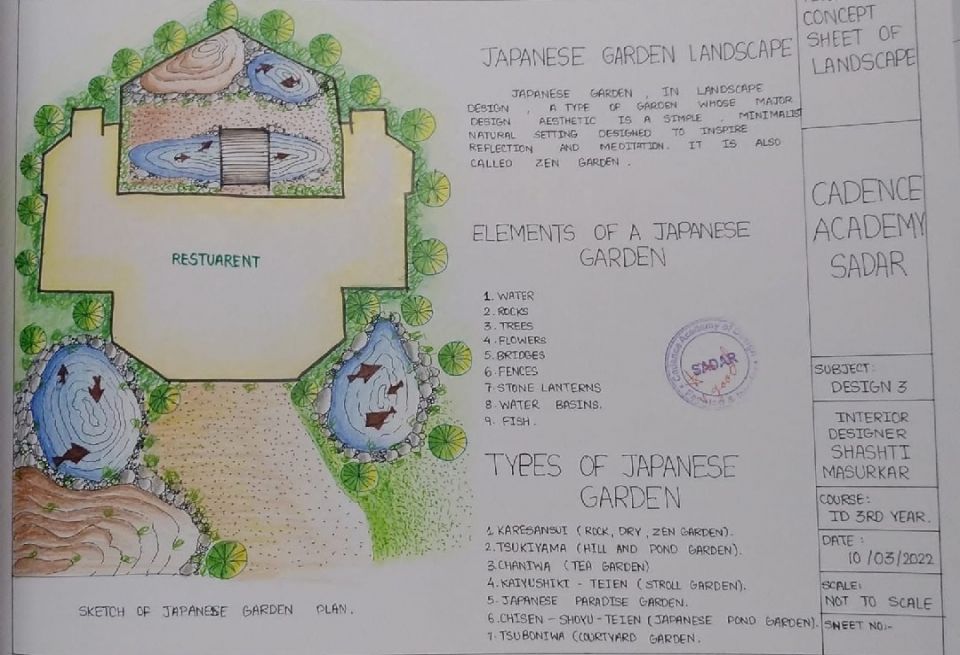 RESTUARENT
SKETCH OF JAPANESE GARDEN PLAN.
JAPANESE GARDEN LANDSCAPE
JAPANESE GARDEN , IN LANDSCAPE
DESIGN , A TYPE OF GARDEN WHOSE MAJOR
DESIGN AESTHETIC IS A SIMPLE , MINIMALIST
NATURAL SETTING DESIGNED TO INSPIRE
REFLECTION AND MEDITATION. IT IS ALSO
CALLED ZEN GARDEN .
ELEMENTS OF A JAPANESE
GARDEN
1. WATER
2. ROCKS
3. TREES
4. FLOWERS
5. BRIDGES
6. FENCES
7. STONE LANTERNS
8. WATER BASINS.
9. FISH.
Cadence Academy of Design
SADAR
TYPES OF JAPANESE
GARDEN
1. KARESANSUI (ROCK, DRY, ZEN GARDEN).
2. TSUKIYAMA (HILL AND POND GARDEN).
3. CHANIWA (TEA GARDEN)
4. KAIYUSHIKI - TEIEN (STROLL GARDEN).
5. JAPANESE PARADISE GARDEN.
6. CHISEN - SHOYU - TEIEN (JAPANESE POND GARDEN).
7. TSUBONIWA (COURTYARD GARDEN.
CONCEPT
SHEET OF
LANDSCAPE
CADENCE
ACADEMY
SADAR
SUBJECT:
DESIGN 3
INTERIOR
DESIGNER
SHASHTI
MASURKAR
COURSE:
ID 3RD YEAR.
DATE :
10/03/2022
SCALE:
NOT TO SCALE
SHEET NO:-